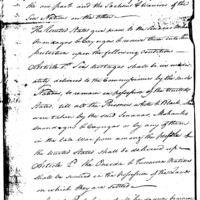 the one part and the Sachems & Warriors of the
Six Nations on the other
The United States give peace to the
Onondagas & Cayugas & receive them into their
protection upon the following Conditions
Article 1st Six hostages shall be immediately
delivered to the Commissioners by the said
Nations, to remain in possession of the United
States, till all the Prisoners white & Black, which
were taken by the said Senecas, Mohawks
Onondagas & Cayugas or by any of them
in the late War from among the People of
the United States shall be delivered up
Article 2d The Oneida & Tuscarora Nations
shall be secured in the possession of the Lands
on which they are settled